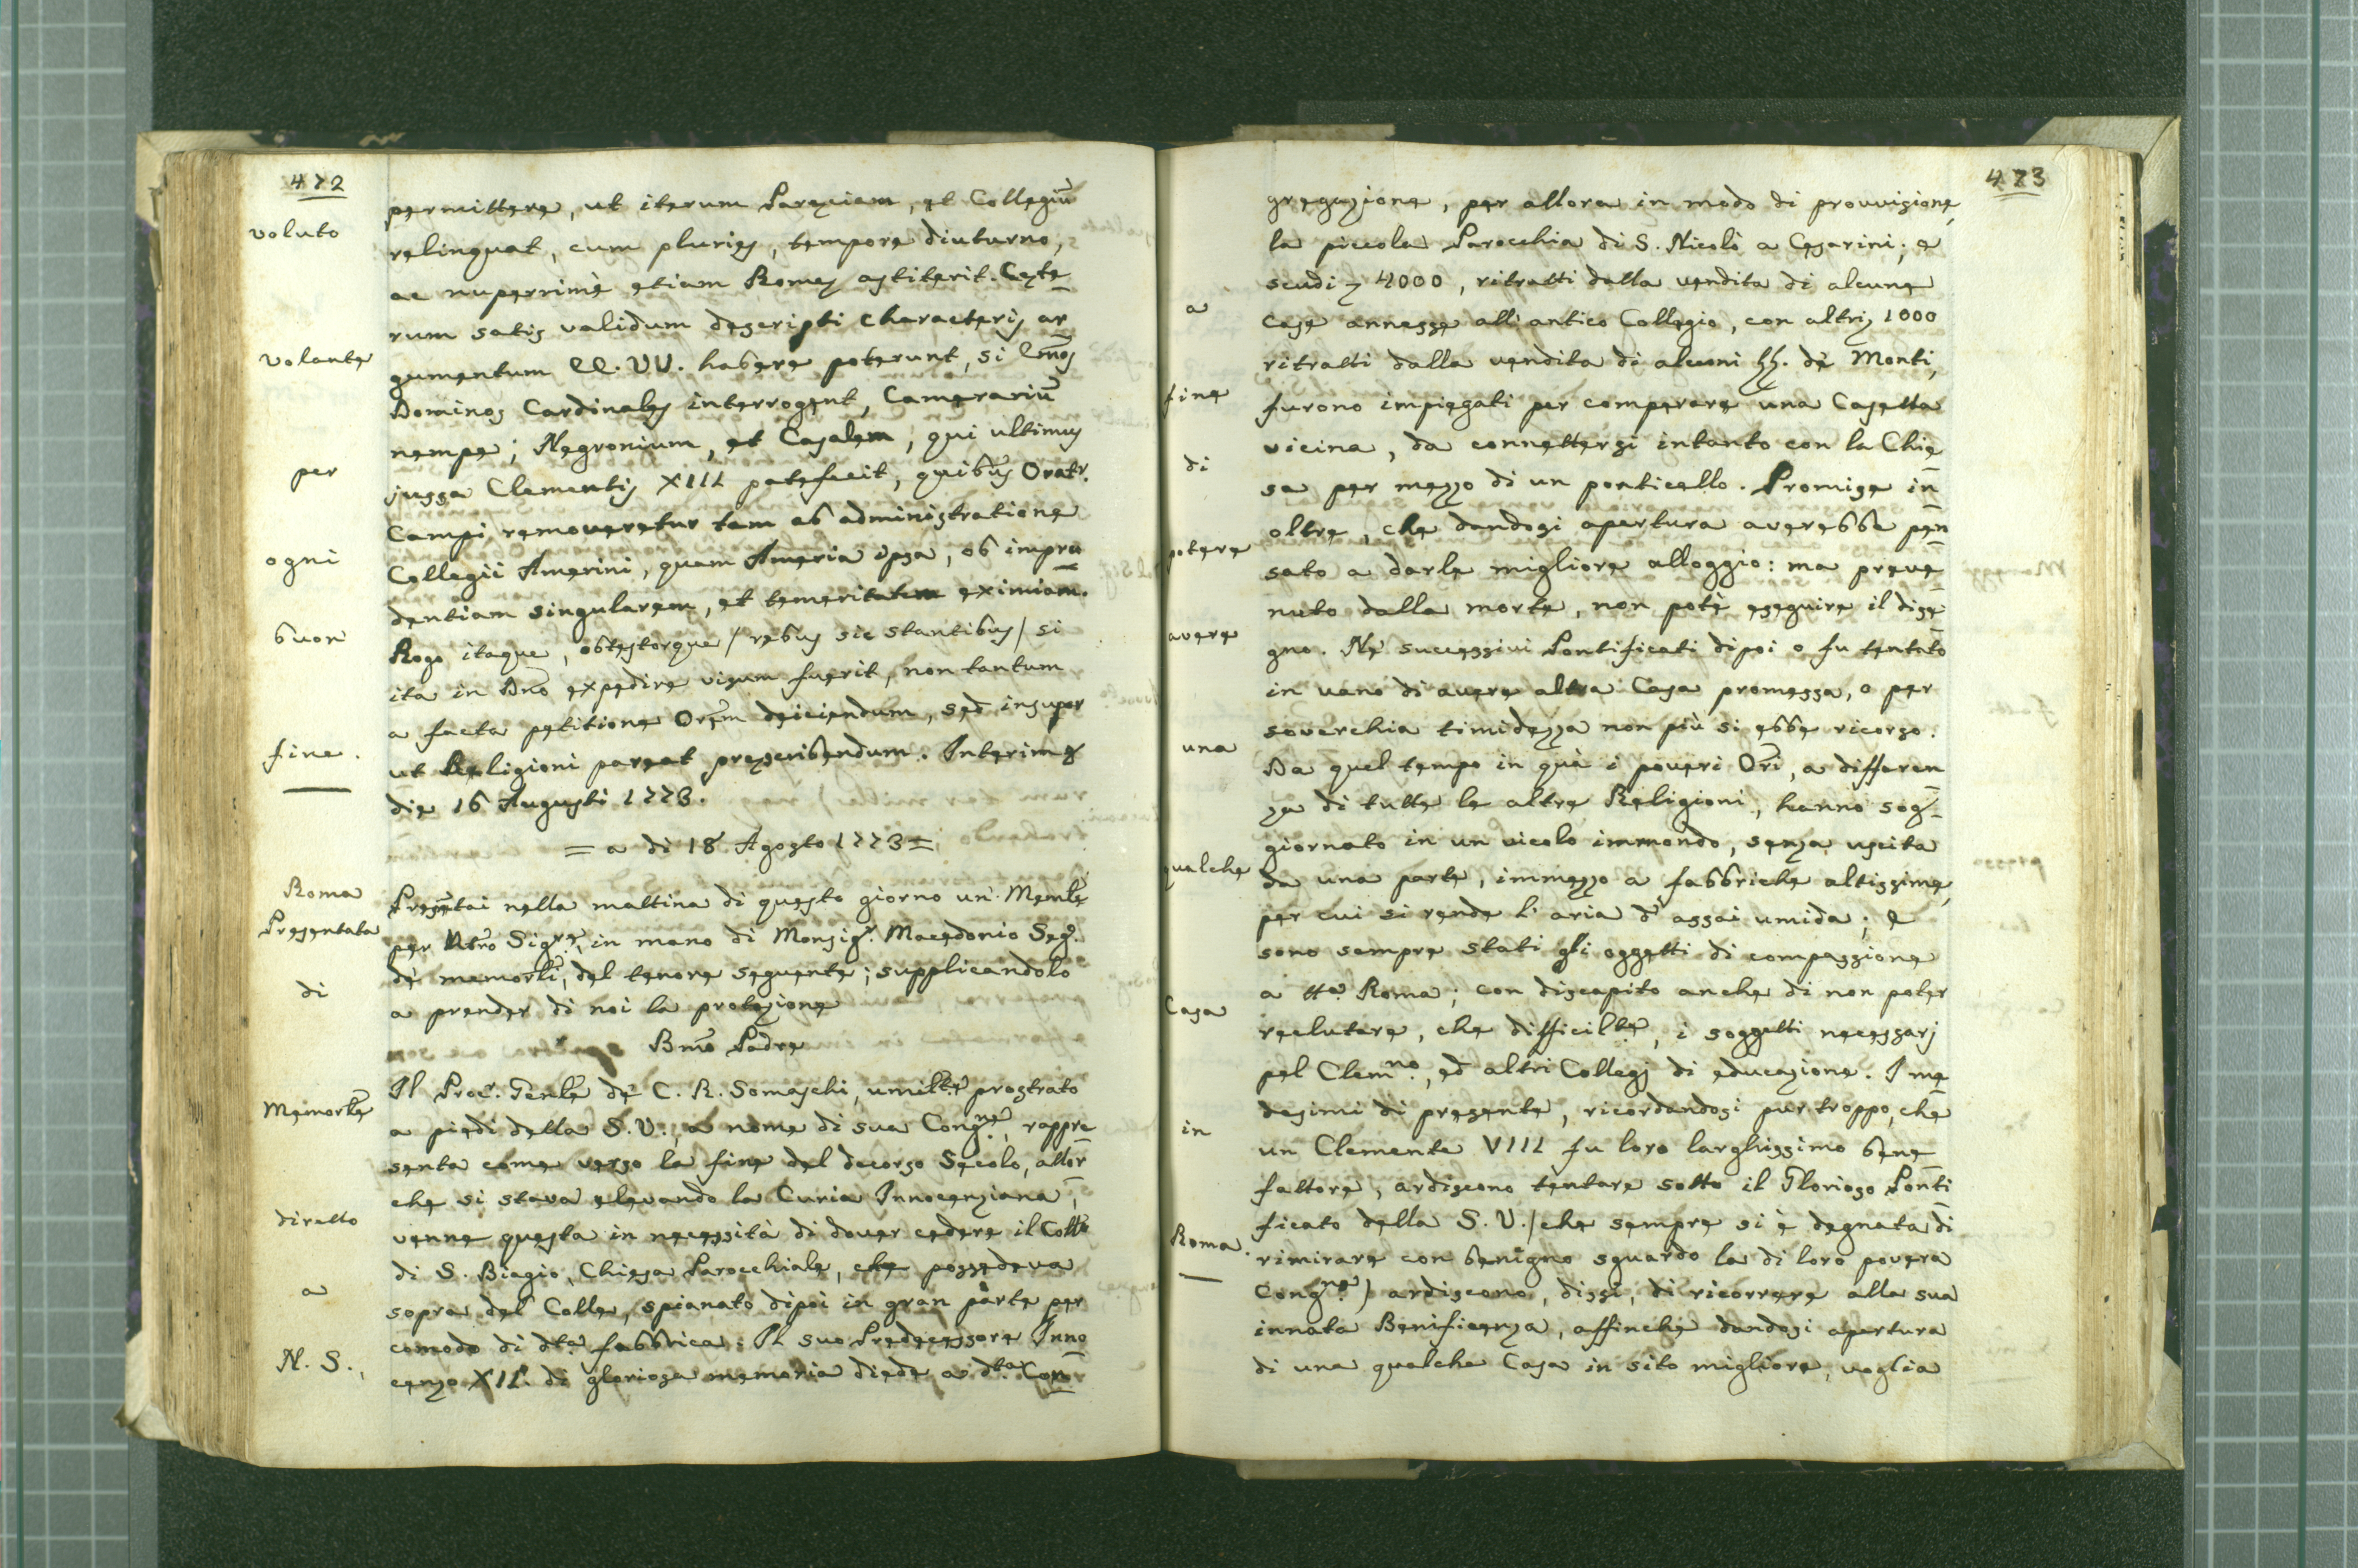 472
voluto
volante
per
ogni
buon
fine.
Roma
Presentata
di
Memorle
diretto
a
N. S.,
permittere, ut iterum Paręciam, et Collegiū
relinquat, cum pluries, tempore diuturno,
ac nuperrimè etiam Romę astiterit. Cęte
rum satis validum descripti characteris ar
gumentum EE. VV. habere poterunt, si Em̃os
Dominos Cardinales interrogent, Camerariū
nempe; Negronium, et Casalem, qui ultimus
jussa Clementis XIII patefecit, quibus Oratr.
Campi removeretur tam ab administratione
Collegii Amerini, quam Ameria ipsa, ob impru
dentiam singularem, et temeritatem eximiam.
Rogo itaque, obtestorque / rebus sic stantibus / si
ita in Dn̄o expedire visum fuerit, non tantum
a facta petitione Orem̄ deiiciendum, sed insuper
ut Religioni pareat pręscribendum. Interim &
die 16 Augusti 1773.
= a di 18 Agosto 1773 =
Presẽtai nella mattina di questo giorno un Memle
per Ntro Sigre, in mano di Monsigr. Macedonio Segr.
de' memorli, del tenore seguente; supplicandolo
a prender di noi la protezione
Bm̃o Padre
Il Procr. Genle de' C. R. Somaschi, umilte prostrato
a piedi della S. V., a nome di sua Congne, rappre
senta come verso la fine del decorso Secolo, allor
che si stava elevando la Curia Innocenziana,
venne questa in necessità di dover cedere il Colle
di S. Biagio, Chiesa Parocchiale, che possedeva
sopra del Colle, spianato dipoi in gran parte per
comodo di dta fabbrica: Il suo Predecessore Inno
cenzo XII. di gloriosa memoria diede a dta Con
473
a
fine
di
potere
avere
una
qualche
Casa
in
Roma.
gregazione, per allora in modo di provvisione,
la piccola Parocchia di S. Nicolò a Cesarini; e
scudi 4000, ritratti dalla vendita di alcune
case annesse all' antico Collegio, con altri 1000
ritratti dalla vendita di alcuni LL. de Monti,
furono impiegati per comperare una Casetta
vicina, da connettersi intanto con la Chie
sa per mezzo di un ponticello. Promise in
oltre, che dandosi apertura averebbe pen
sato a darle migliore alloggio: ma preve
nuto dalla morte, non potè eseguire il dise
gno. Ne' successivi Pontificati dipoi o fu tentato
in vano di avere altra Casa promessa, o per
soverchia timidezza non più si ebbe ricorso.
Da quel tempo in quà i poveri Ori, a differen
za di tutte le altre Religioni, hanno sog
giornato in un vicolo immondo, senza uscita
da una parte, immezzo a fabbriche altissime,
per cui si rende l' aria d' assai umida; e
sono sempre stati gli oggetti di compassione
a tta Roma; con discapito anche di non poter
reclutare, che difficilte, i soggetti necessarj
pel Clemno, ed altri Collegj di educazione. I me
desimi di presente, ricordandosi pur troppo, che
un Clemente VIII fu loro larghissimo bene
fattore, ardiscono tentare sotto il Glorioso Ponti
ficato della S. V. / che sempre si è degnata di
rimirare con benigno sguardo la di loro povera
Congne / ardiscono, dissi, di ricorrere alla sua
innata Benificenza, affinche dandosi apertura
di una qualche Casa in sito migliore, voglia